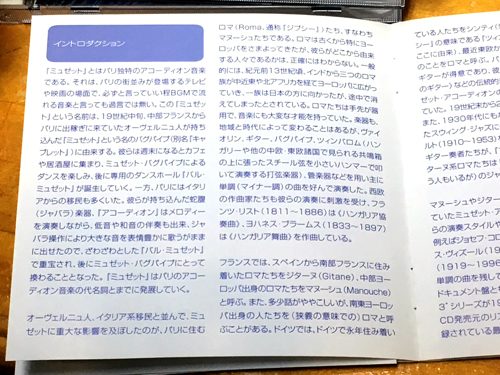 イントロダクション
『ミュゼット』とはパリ独特のアコーディオン音楽
である。それは、パリの街並みが登場するテレビ
や映画の場面で、必ずと言っていい程BGMで流
れる音楽と言っても過言では無い。この『ミュゼッ
ト』という名前は、19世紀中旬、中部フランスから
パリに出稼ぎに来ていたオーベルニュ人が持ち
込んだ『ミュゼット』という名のバグパイプ(別名『キャ
ブレット』)に由来する。彼らは週末になるとカフェ
や居酒屋に集まり、ミュゼット・バグパイプによる
ダンスを楽しみ、後に専用のダンスホール『バル・
ミュゼット』が誕生していく。一方、パリにはイタリア
からの移民も多くいた。彼らが持ち込んだ蛇腹
(ジャバラ)楽器、『アコーディオン』はメロディー
を演奏しながら、低音や和音の伴奏も出来、ジャ
バラ操作により大きな音を表情豊かに歌うがまま
に出せたので、ざわざわとした『バル・ミュゼット』
で重宝され、後にミュゼット・バグパイプにとって
換わることとなった。『ミュゼット』はパリのアコー
ディオン音楽の代名詞とまでに発展していく。
オーヴェルニュ人、イタリア系移民と並んで、ミュ
ゼットに重大な影響を及ぼしたのが、パリに住む
ロマ(Roma、通称『ジプシー』)たち、すなわち
マヌーシュたちである。ロマは古くから特にヨー
ロッパをさまよってきたが、彼らがどこから由来
する人々であるかは、正確にはわからない。一般
的には、紀元前13世紀頃、インドから三つのロマ
族が中近東や北アフリカを経てヨーロッパに広がっ
ていき、一族は日本の方に向かったが、途中で消
えてしまったとされている。ロマたちは手先が器
用で、音楽にも大変な才能を持っていた。楽器も、
地域と時代によって変わることはあるが、ヴァイ
オリン、ギター、バグパイプ、ツィンバロム(ハンガ
リーや他の中欧・東欧諸国で見られる共鳴箱
の上に張ったスチール弦を小さいハンマーで叩
いて演奏する打弦楽器)、管楽器などを用い主に
単調(マイナー調)の曲を好んで演奏した。西欧
の作曲家たちも彼らの演奏に刺激を受け、フラ
ンツ・リスト(1811〜1886)は〈ハンガリア協
奏曲〉、ヨハネス・ブラームス(1833〜1897)
は〈ハンガリア舞曲〉を作曲している。
フランスでは、スペインから南部フランスに住み
着いたロマたちをジターヌ(Gitane)、中部ヨー
ロッパ出身のロマたちをマヌーシュ(Manouche)
と呼ぶ。また、多少話がややこしいが、南東ヨーロッ
パ出身の人たちを(狭義の意味での)ロマと呼
ぶことがある。ドイツでは、ドイツで永年住み着い
ている人たちをシンティ(
シー』の意味である『ツィ
にこ由来)、最近東欧
のことをロマと呼ぶ。パ
ギターが得意であり、彼
のギターなどの伝統的
ゼット・アコーディオン
ていた。19世紀末から
また、1930年代にも
たスウィング・ジャズに
ルト(1910〜1953)を
ギター奏者たちが、
ターヌ系ロマたちは
う人もいるが)のジャ
マヌーシュやジター
ていたミュゼット・ア
らの演奏スタイルや
例えばジョセフ・コロ
ス・ヴィズール(19
(1919〜1996
単調の曲を残し
ドキュメント盤と
3”シリーズが1
CD発売元のリ
録されている最